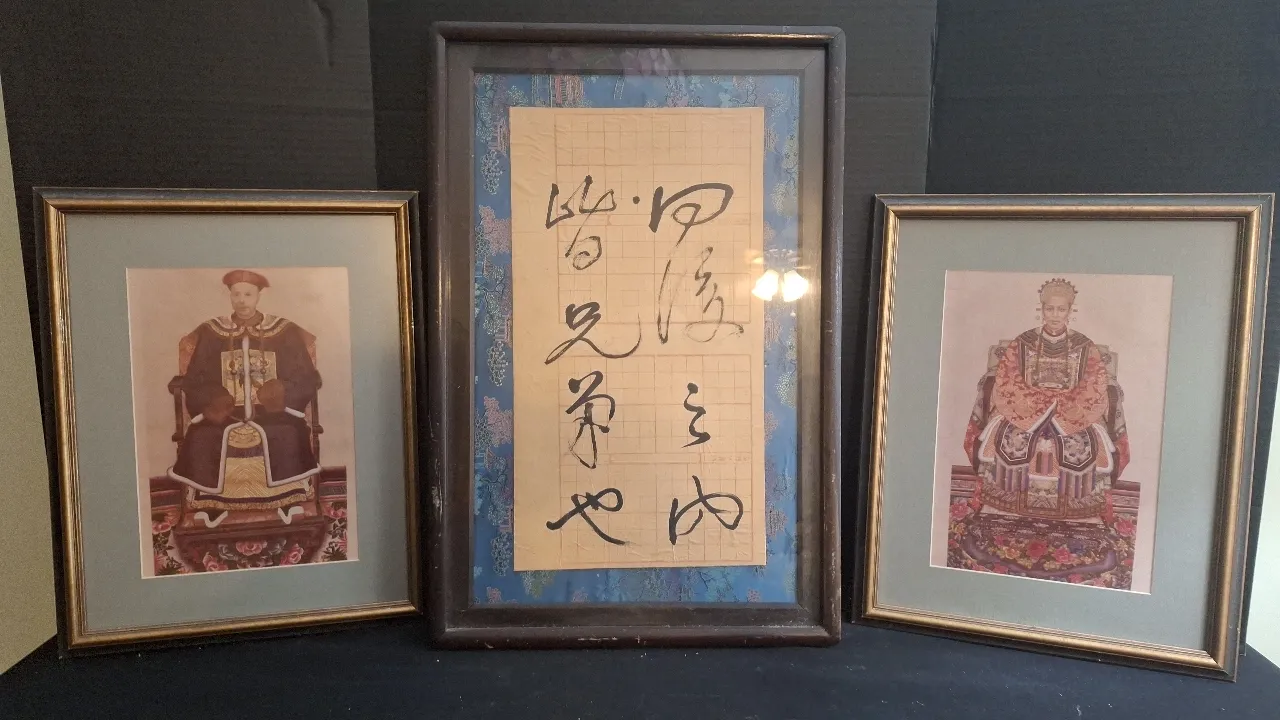 四海之内
皆兄弟也